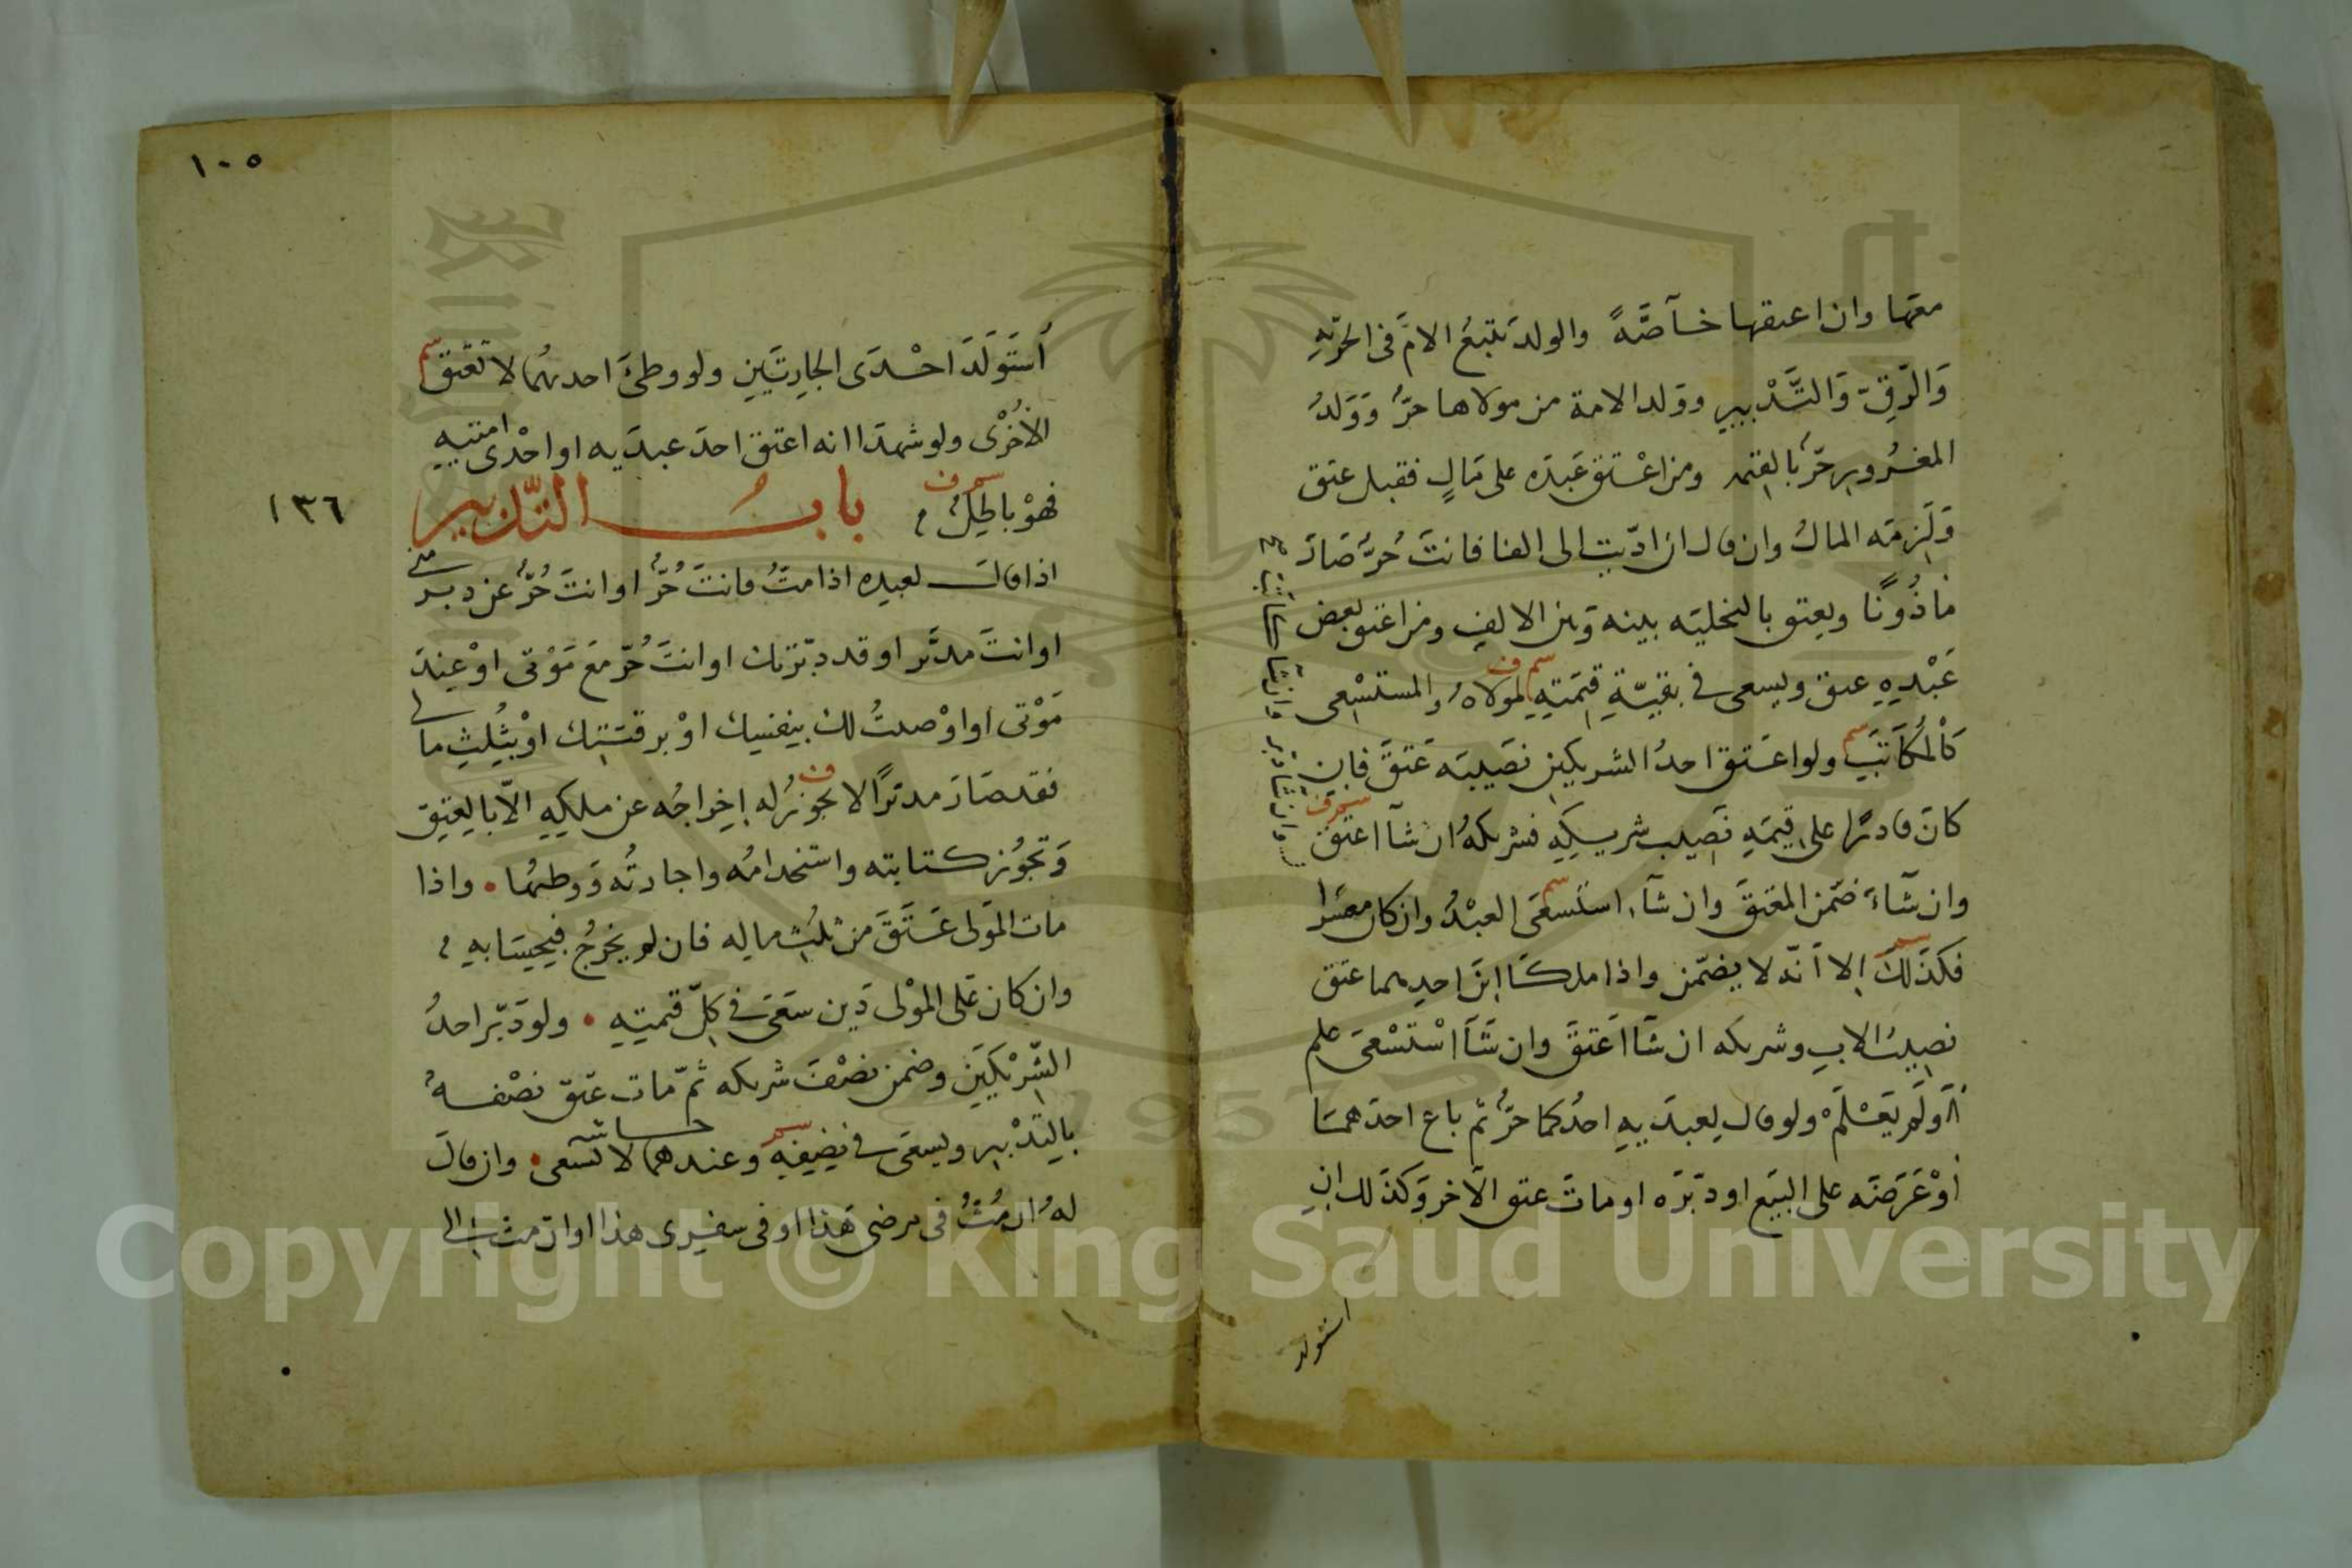 معها وان اعتقها خآصَّةً والولد يتبعُ الامَّ فى الحرّيةِ
وَالرّقِّ وَالتَّدْبيرِ وولد الامة من مولاها حرٌّ وَوَلدُ
المغرُورِ حرٌّ بالقيمة ومن اعْتق عَبدَه على مَالٍ فقبل عتق
وَلَزِمَه المالُ وان قال ان ادّيت الى الفا فانتَ حُرٌّ صَارَ
مَاذُونًا ويعتق بالتخلية بينه وَبين الالفِ ومن اعتق بعض
عَبْدِهِ عتق ويسعى فى بقيّةِ قيمَتِهِ لمولاهُ والمستسْعى
سم ف
كَالمُكاَتَبِ ولو اعتق احدُ الشريكينِ نصَيبَه عَتقَ فان
سم
كانَ قادرًا على قيمَةِ نصِيب شريكِهِ فشريكهُ ان شآ اعتق
سم ف
وان شَاءَ ضمّن المعتقَ وان شآء استسعَى العبْدُ وان كان معسَرا
سم
فكذَلك إلا اَنّه لا يضمّن واذا ملكا ابنَ احدِهما عتق
سم
نصِيبُ الابِ وشريكه ان شآ اَعتقَ وان شَآ اسْتَسْعَى علم
اَوَلَم يَعْلَمْ ولو قال لِعبدَيهِ احدُكما حرٌّ ثم باع احدَهمَا
اَوْ عَرَضَه على البيَع او دبّرَه او ماتَ عتق الآخر وَكذلك انِ
استولد
١٠٥
اَستَوْلَدَ احْدَى الجارِيتَينِ ولو وطئَ احدهُما لا تعتق
سم
الاُخْرٰى ولو شهدَا انه اعتق احدَ عبدَيه او احْدى امتيهِ
فهوْ باطِلٌ
سم ف
بابُ التّدبير
١٣٦
اذا قالَ لعبده اذا متُّ فانتَ حُرٌّ او انتَ حُرٌّ عن دبر منى
او انتَ مدبَّر او قد دبّرتك او انتَ حُرّ مَعَ مَوْتى اوْ عِندَ
مَوْتى او اوْصيتُ لك بنفسِك اوْ برقبَتِك اوْ بثُلثِ مالى
فقد صَارَ مدبّرًا لا يجوزُ له اِخراجُه عن ملكِهِ الاّ بالعِتقِ
ف
وَتجوُز كتابته واستخدامُه واجارتُه وَوطئها • واذا
مات المَولى عَتَقَ من ثلُثِ ماله فان لم يخرجُ فبِحِسَابهِ
وان كان عَلى المَوْلى دَين سَعَى فى كلّ قيمتِهِ • ولو دَبّر احدُ
الشّرِيْكَيَنِ وضمن نصْفَ شريكه ثمّ مات عتق نصْفهُ
بالتدْبير ويسعَى فى نِصفِهِ وعندهما لا تسعى • وان قالَ
سم
لهُ ان مُتُّ فى مرضى هَذا او فى سفرى هذا او ان مت الى